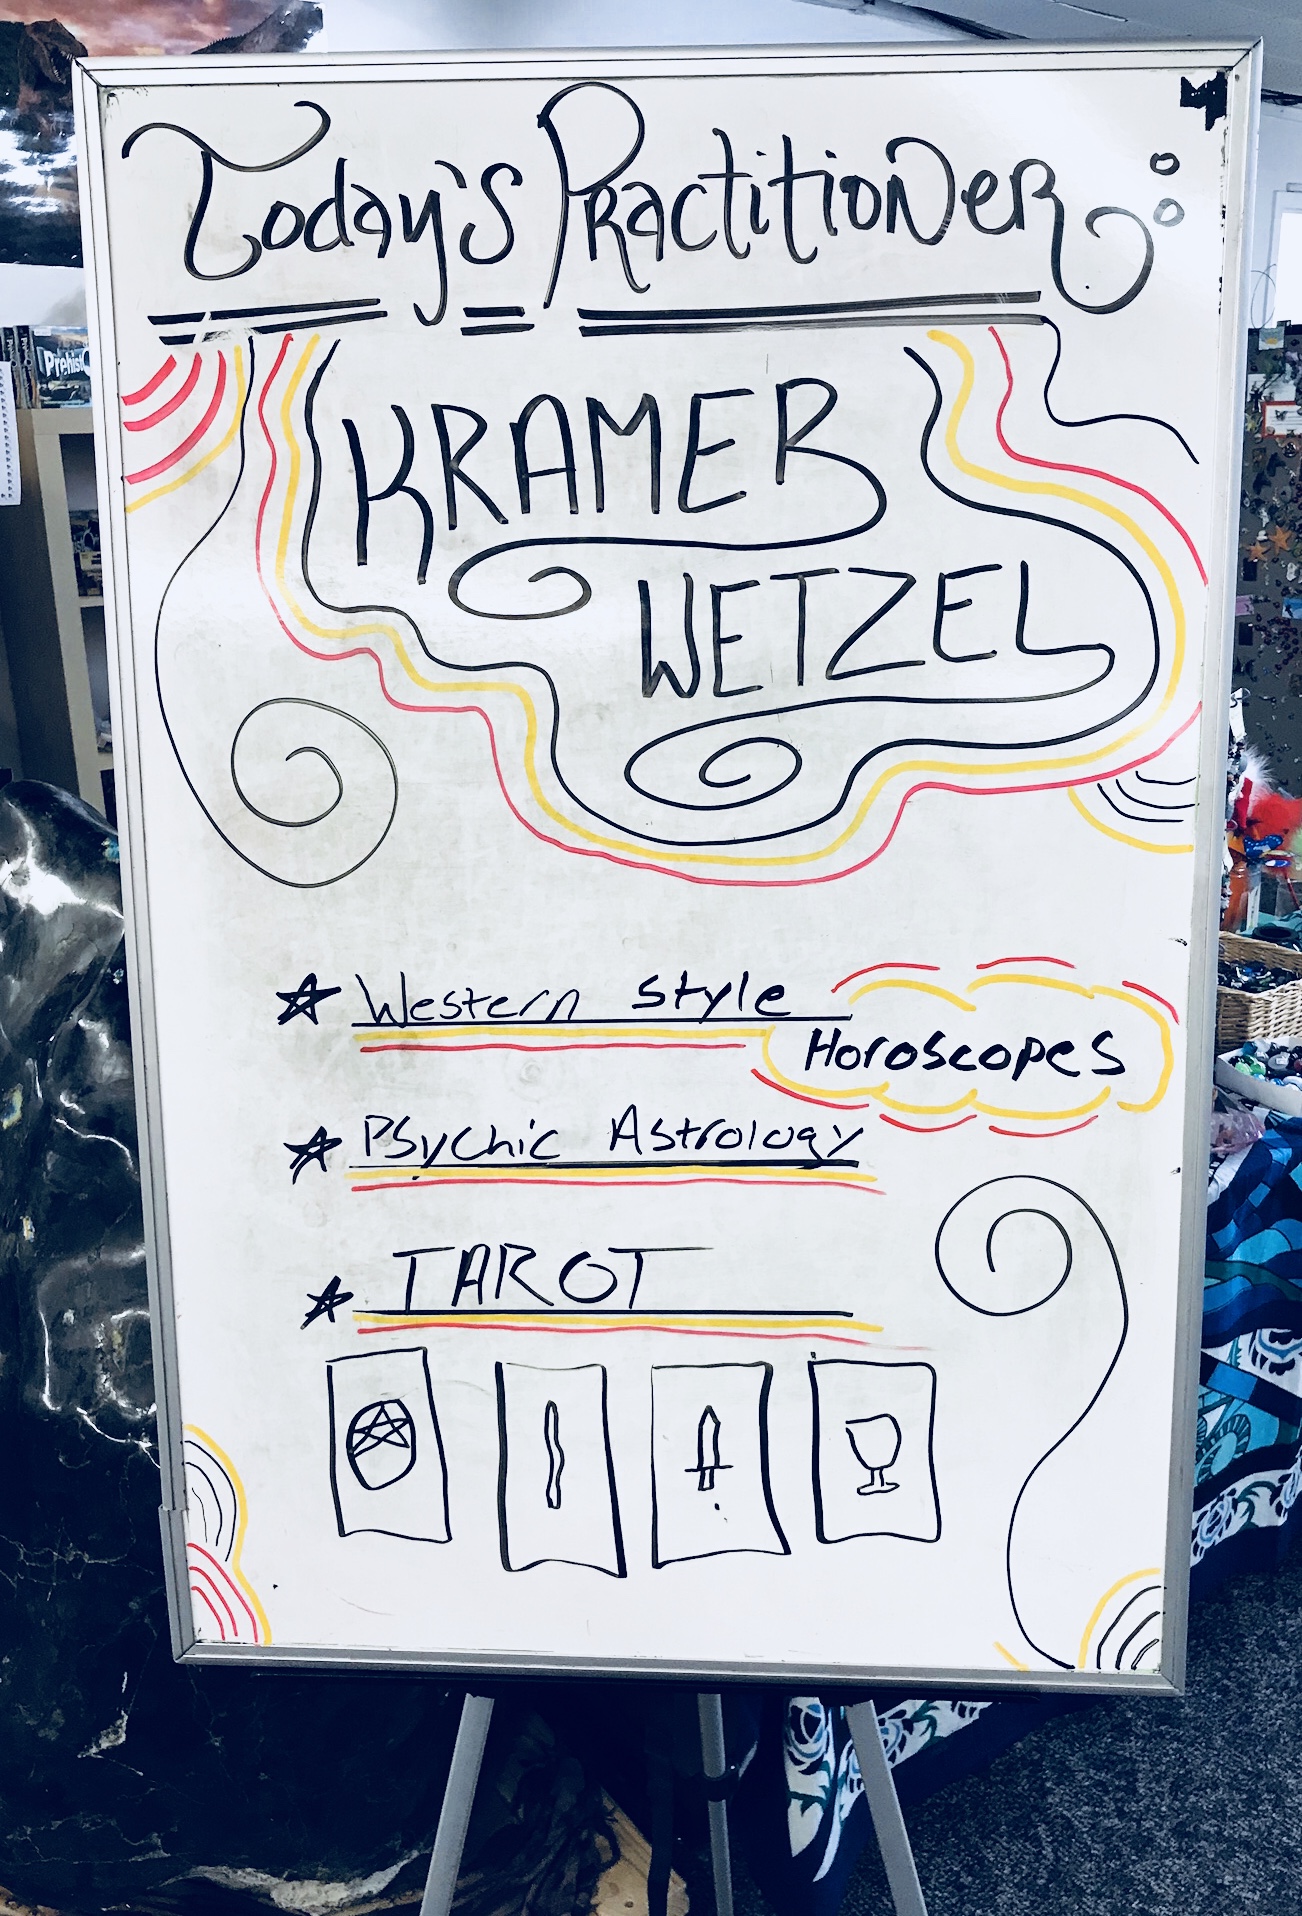 Today's Practitioner:
KRAMER
WETZEL
Western style
Horoscopes
Psychic Astrology
TAROT